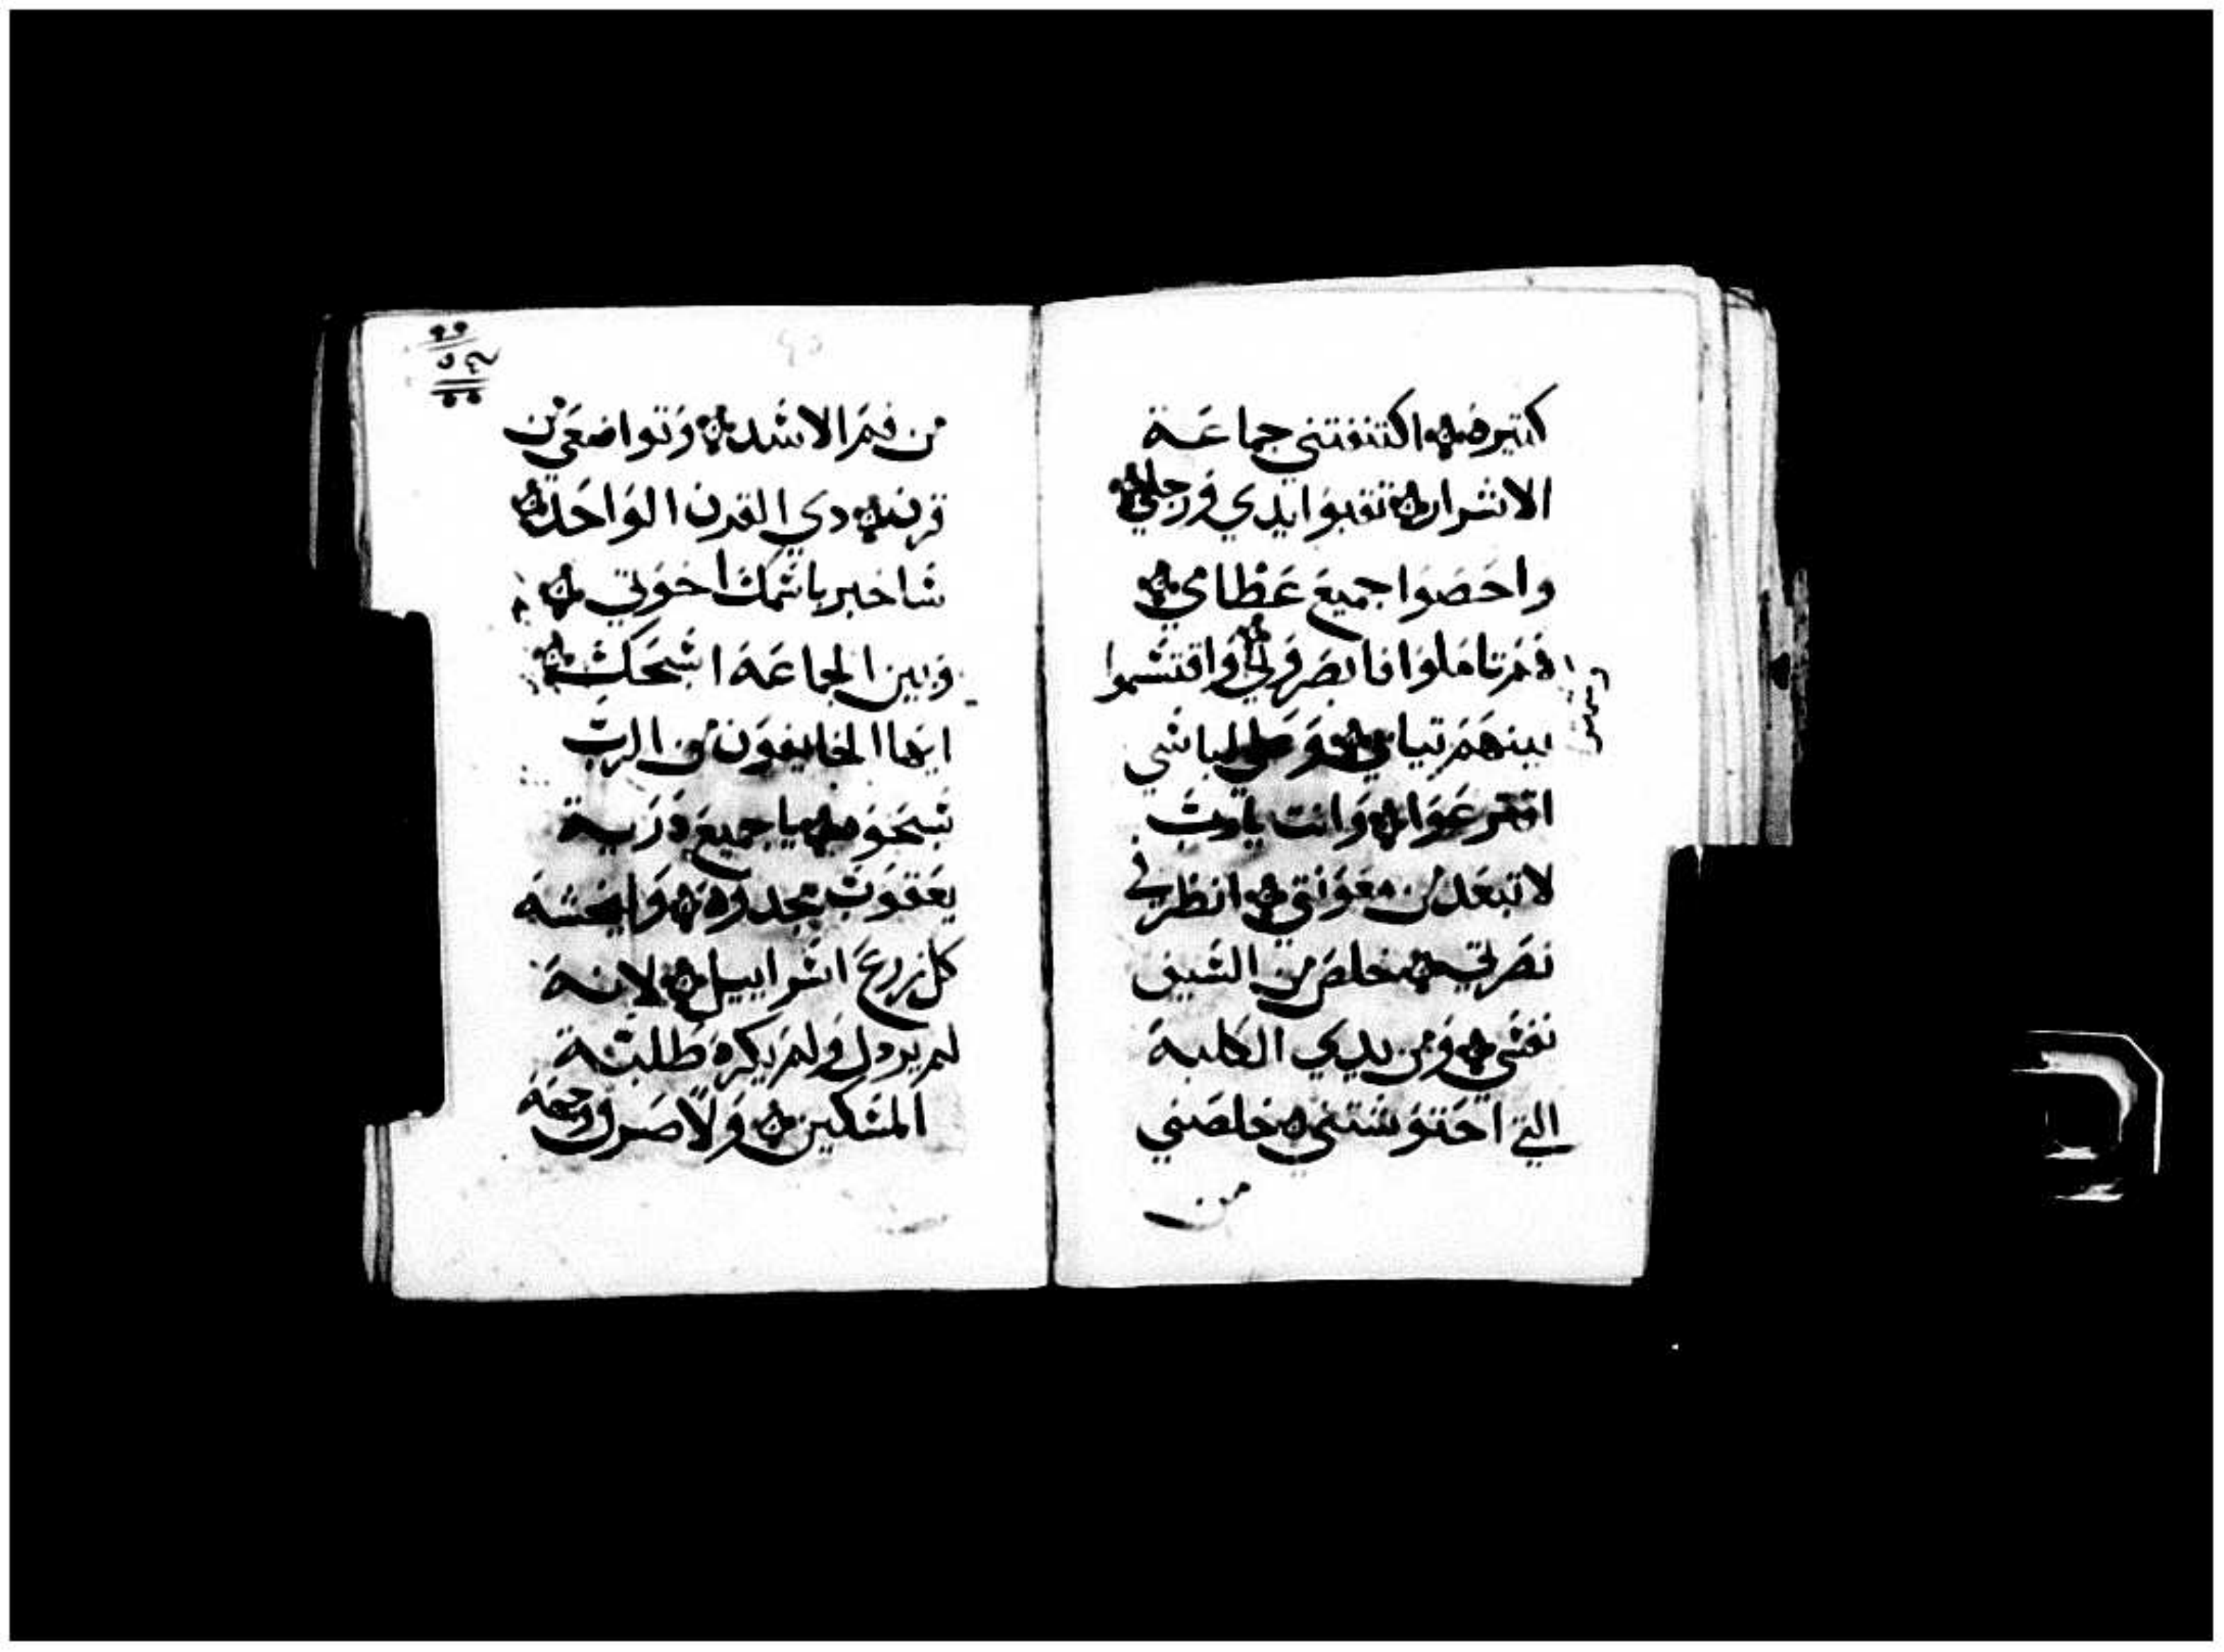 كتيره اكتنفتني جماعة
الاشرار تقبوا ايدي ورجلي
واحصوا جميع عظامي
هم تاملوا فابصروني واقتسموا
بينهم تيابي وعلي لباسي
اقترعوا وانت يارب
لا تبعد من معونتي انظر في
نصرتي خلص من السيف
نفسي ومن يدي الكلبة
التي احتوشتني خلصني
من
من فم الاسد وتواضعي من
قرن دي القرن الواحد
ساخبر باسمك اخوتي
وبين الجماعة اسبحك
ايها الخايفون من الرب
سبحوه يا جميع درية
يعقوب مجدوه وليخشه
كل زرع اسراييل لانه
لم يردل ولم يكره طلبة
المسكين ولا صرف وجهه